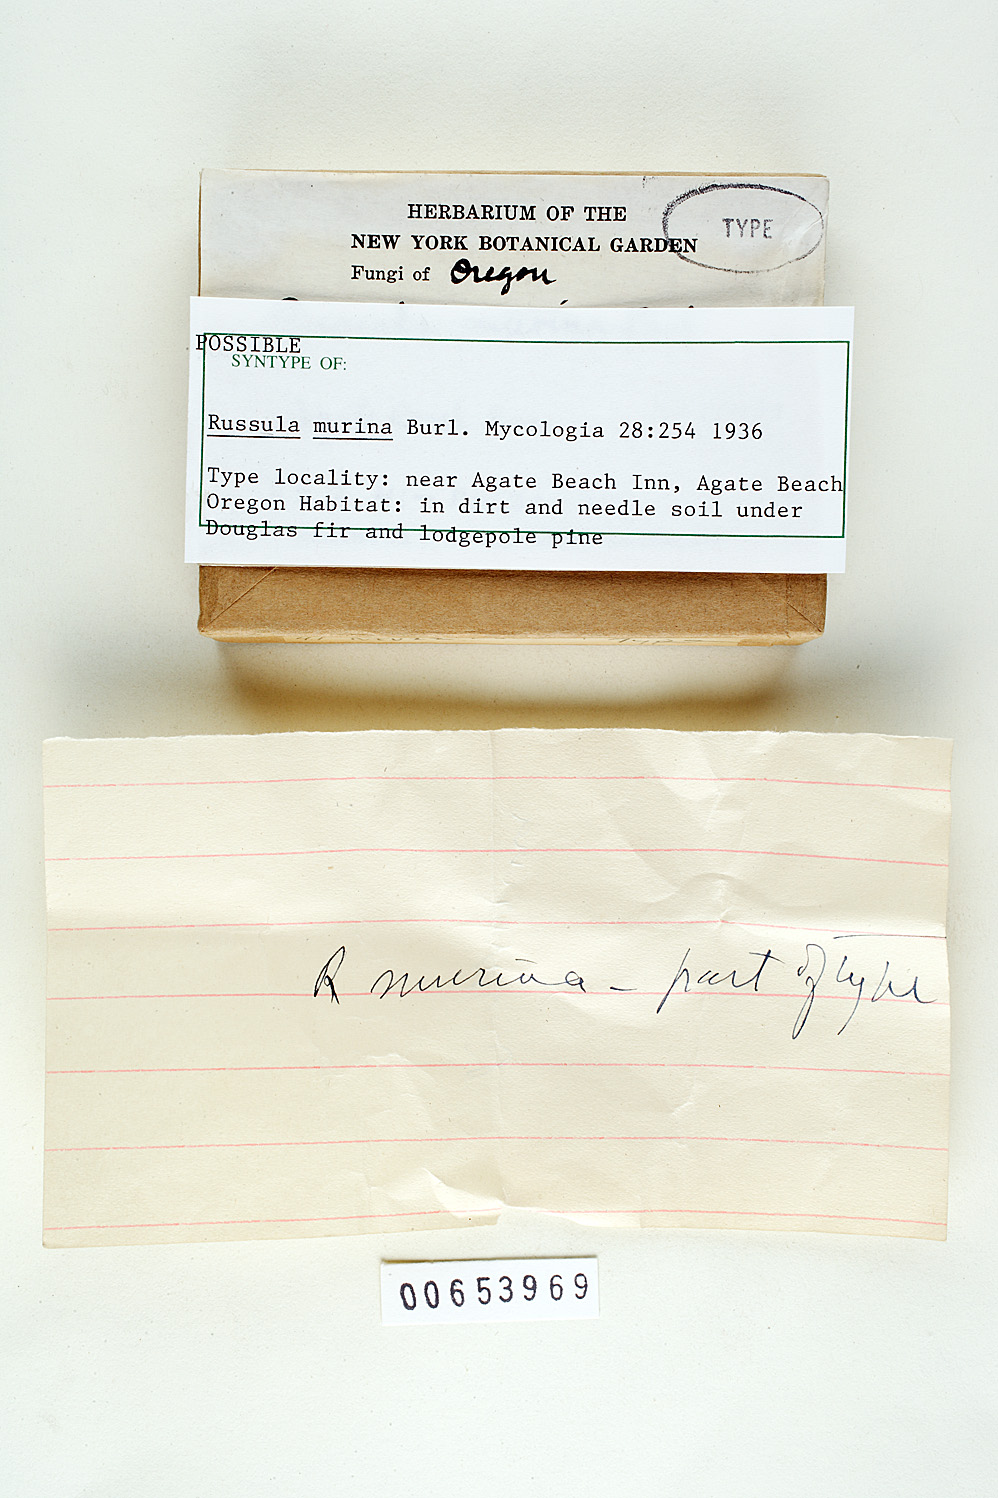 HERBARIUM OF THE
NEW YORK BOTANICAL GARDEN
Fungi of Oregon
TYPE
POSSIBLE
SYNTYPE OF:
Russula murina Burl. Mycologia 28:254 1936
Type locality: near Agate Beach Inn, Agate Beach
Oregon Habitat: in dirt and needle soil under
Douglas fir and lodgepole pine
R murina - part of type
00653969